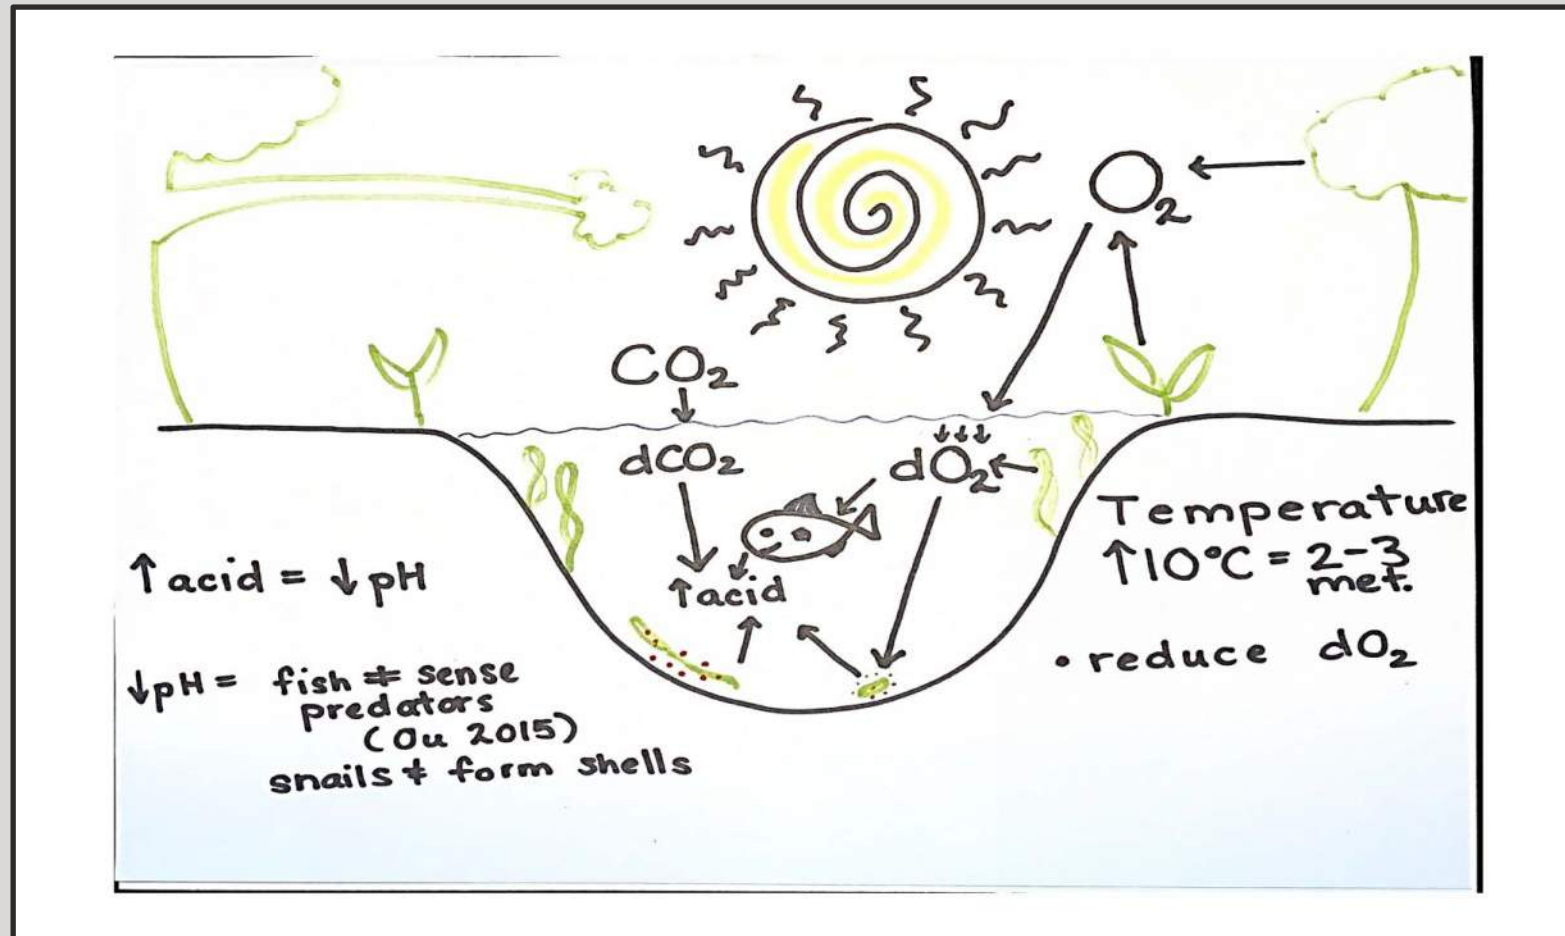 O₂
CO₂
dCO₂
dO₂
↑ acid
↑ acid = ↓ pH
↓ pH = fish ≠ sense
predators
(Ou 2015)
snails ≠ form shells
Temperature
↑ 10°C = 2-3
met.
• reduce dO₂